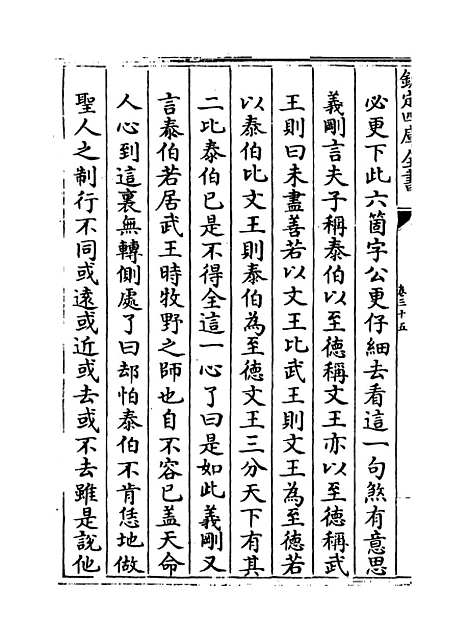 欽定四庫全書
卷三十五
必更下此六箇字公更仔細去看這一句煞有意思
義剛言夫子稱泰伯以至德稱文王亦以至德稱武
王則曰未盡善若以文王比武王則文王為至德若
以泰伯比文王則泰伯為至德文王三分天下有其
二比泰伯已是不得全這一心了曰是如此義剛又
言泰伯若居武王時牧野之師也自不容已蓋天命
人心到這裏無轉側處了曰却怕泰伯不肯恁地做
聖人之制行不同或遠或近或去或不去雖是說他